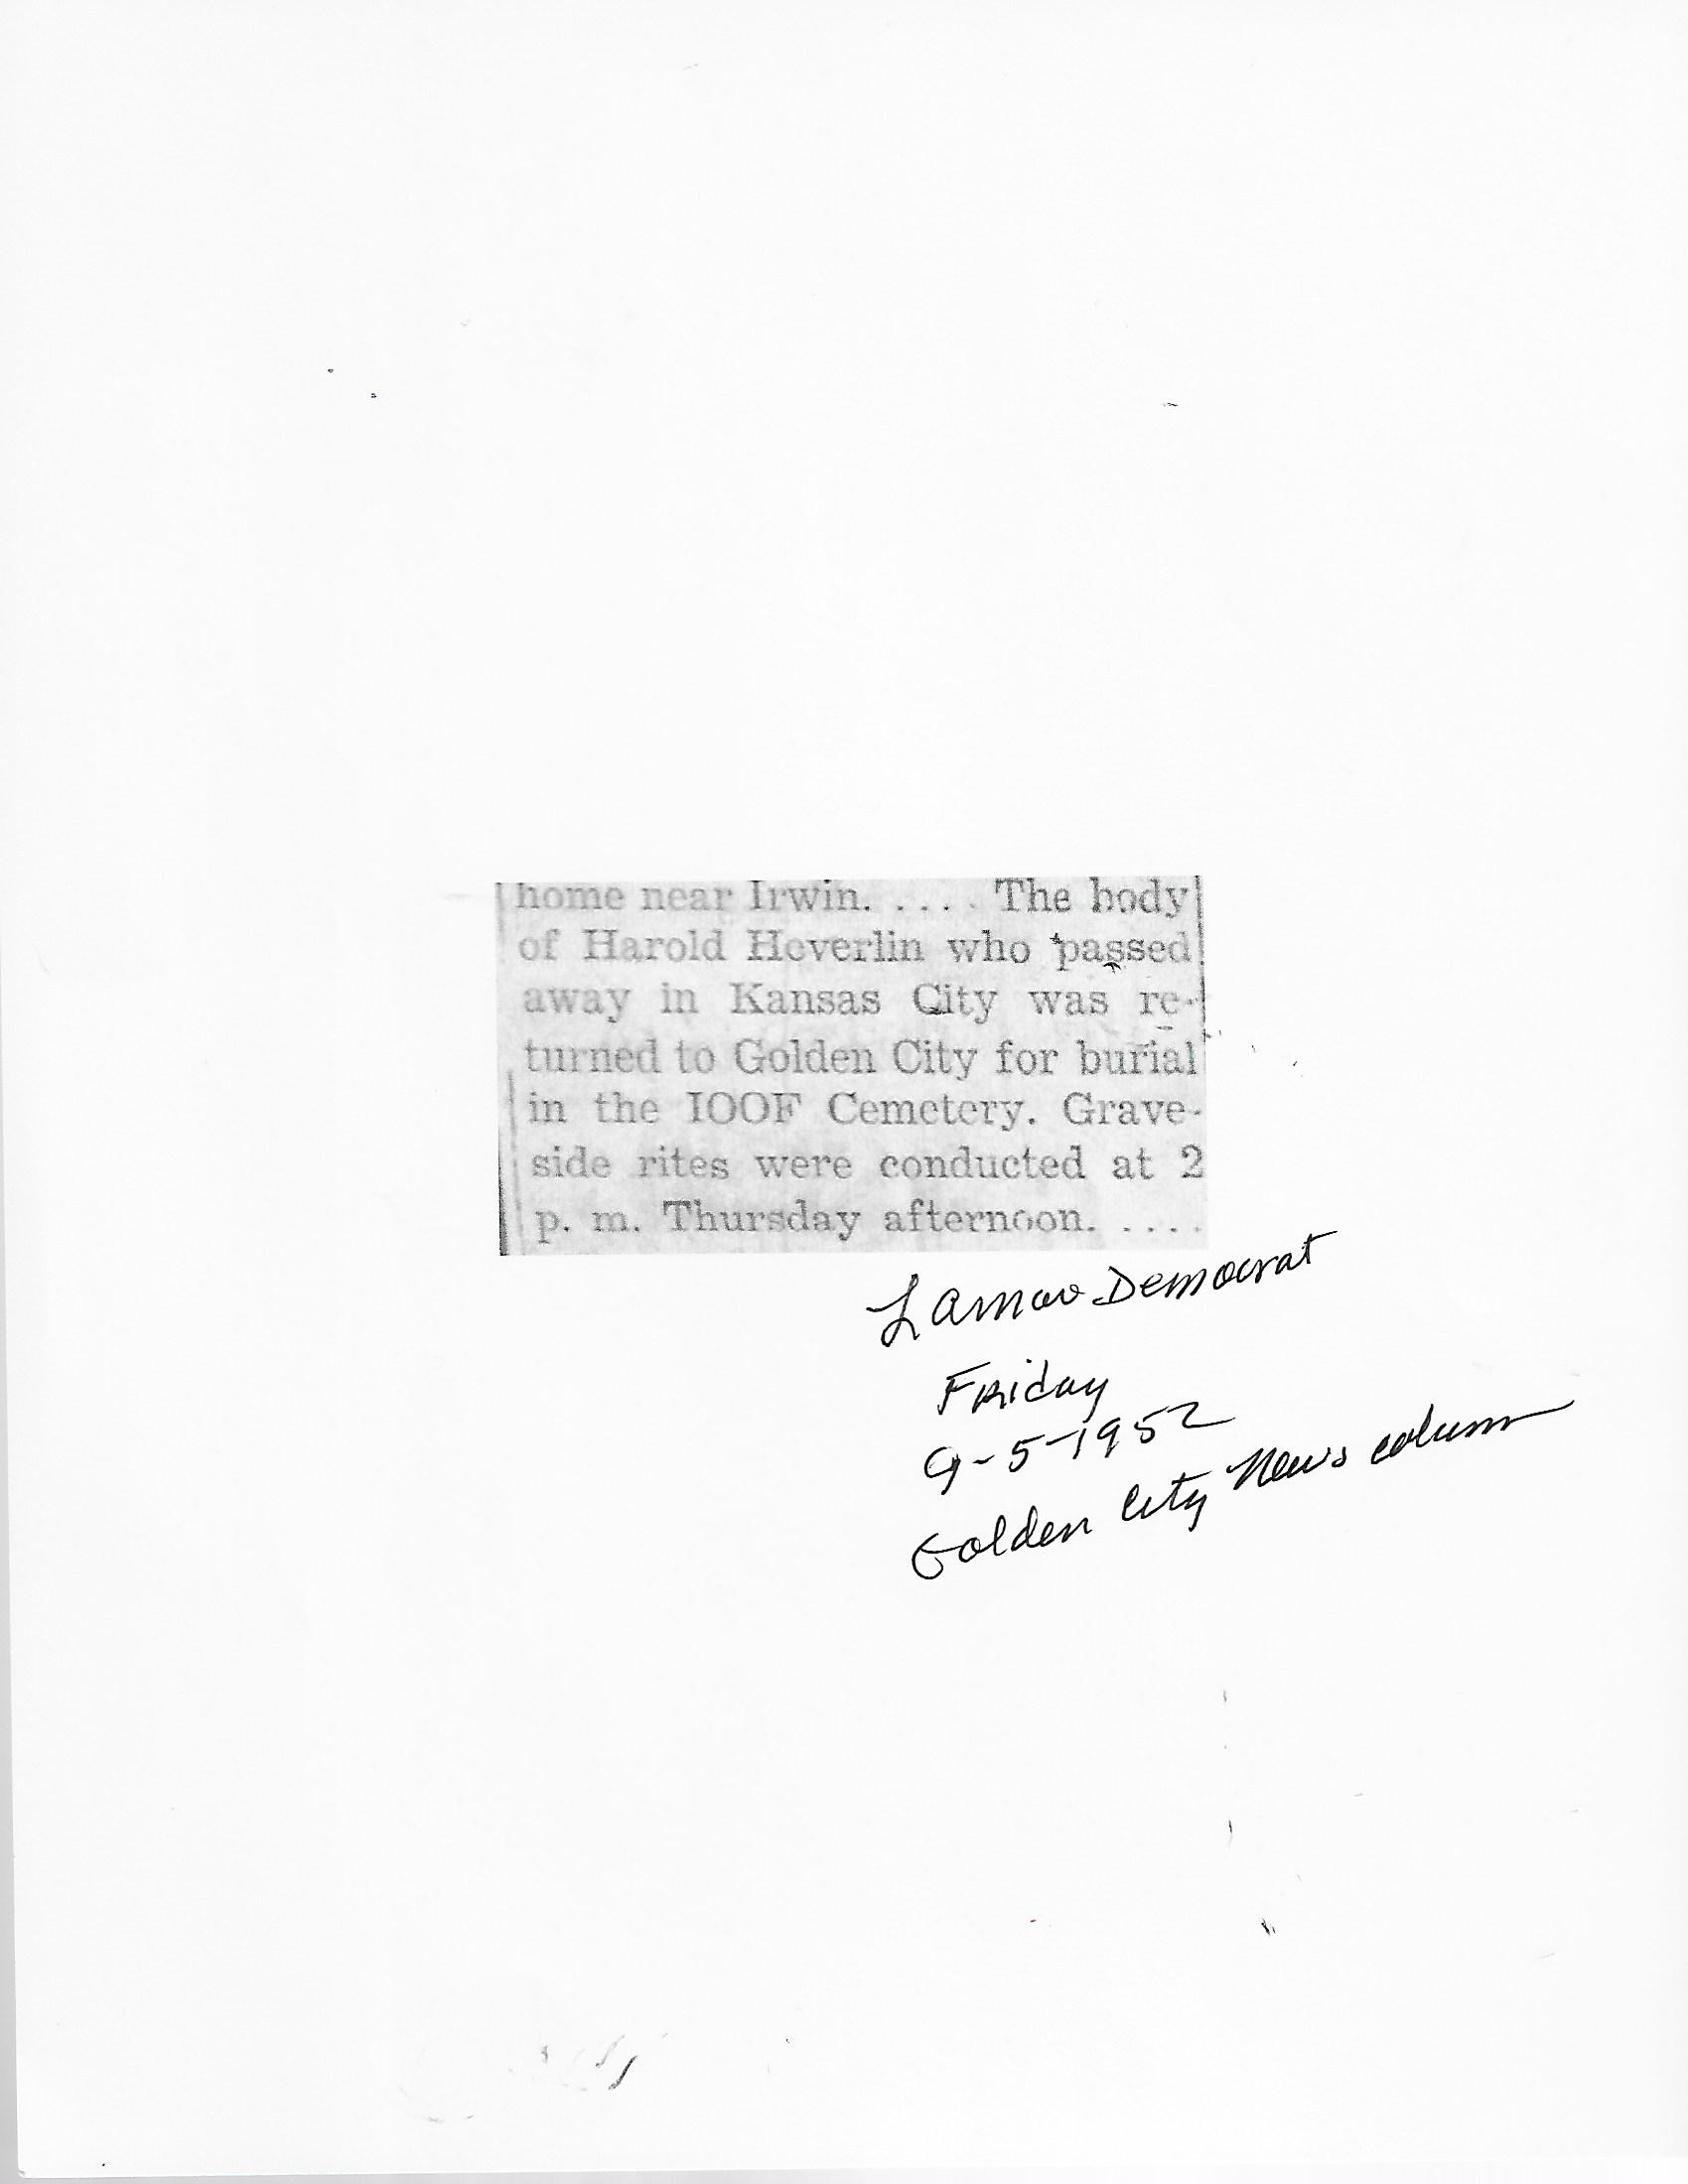 home near Irwin. .... The body
of Harold Heverlin who passed
away in Kansas City was re-
turned to Golden City for burial
in the IOOF Cemetery. Grave-
side rites were conducted at 2
p. m. Thursday afternoon. ....
Lamar Democrat
Friday
9-5-1952
Golden City News column